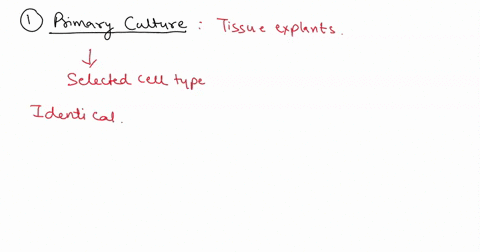 ① Primary Culture : Tissue explants.
↓
Selected cell type
Identical.